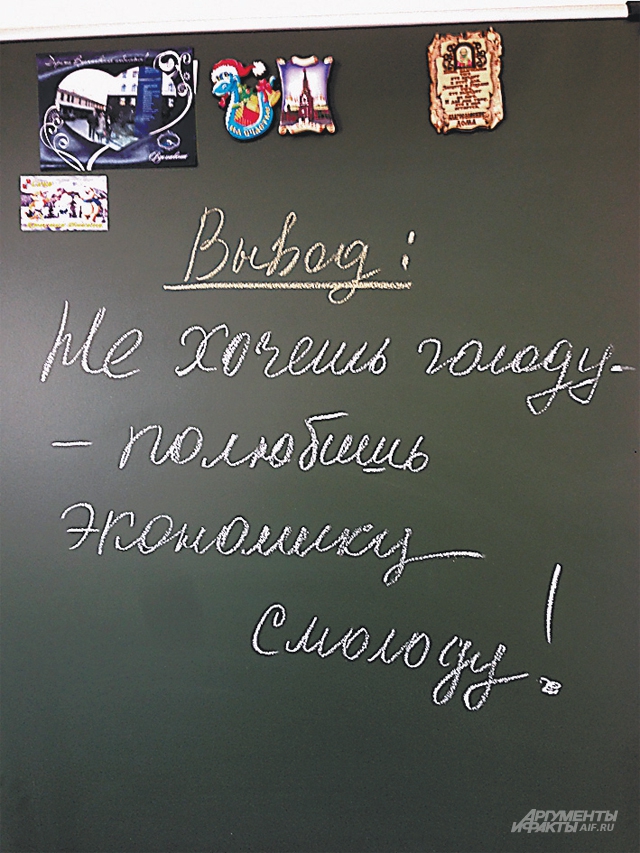 Вывод:
Не хочешь голоду-
- полюбишь
экономику
смолоду!
АРГУМЕНТЫ
И ФАКТЫ AIF.RU